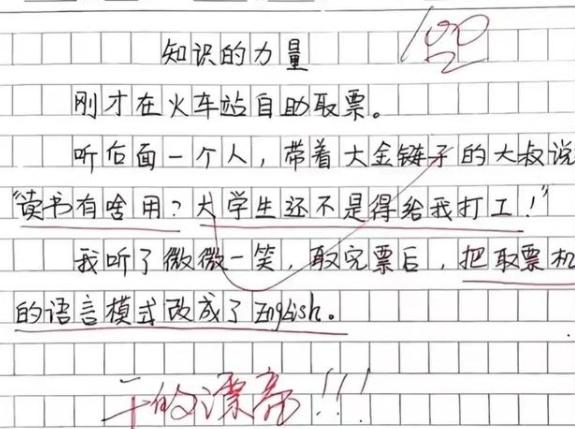 100
知识的力量
刚才在火车站自助取票。
听后面一个人，带着大金链子的大叔说
“读书有啥用？大学生还不是得给我打工！”
我听了微微一笑，取完票后，把取票机
的语言模式改成了English。
干的漂亮!!!